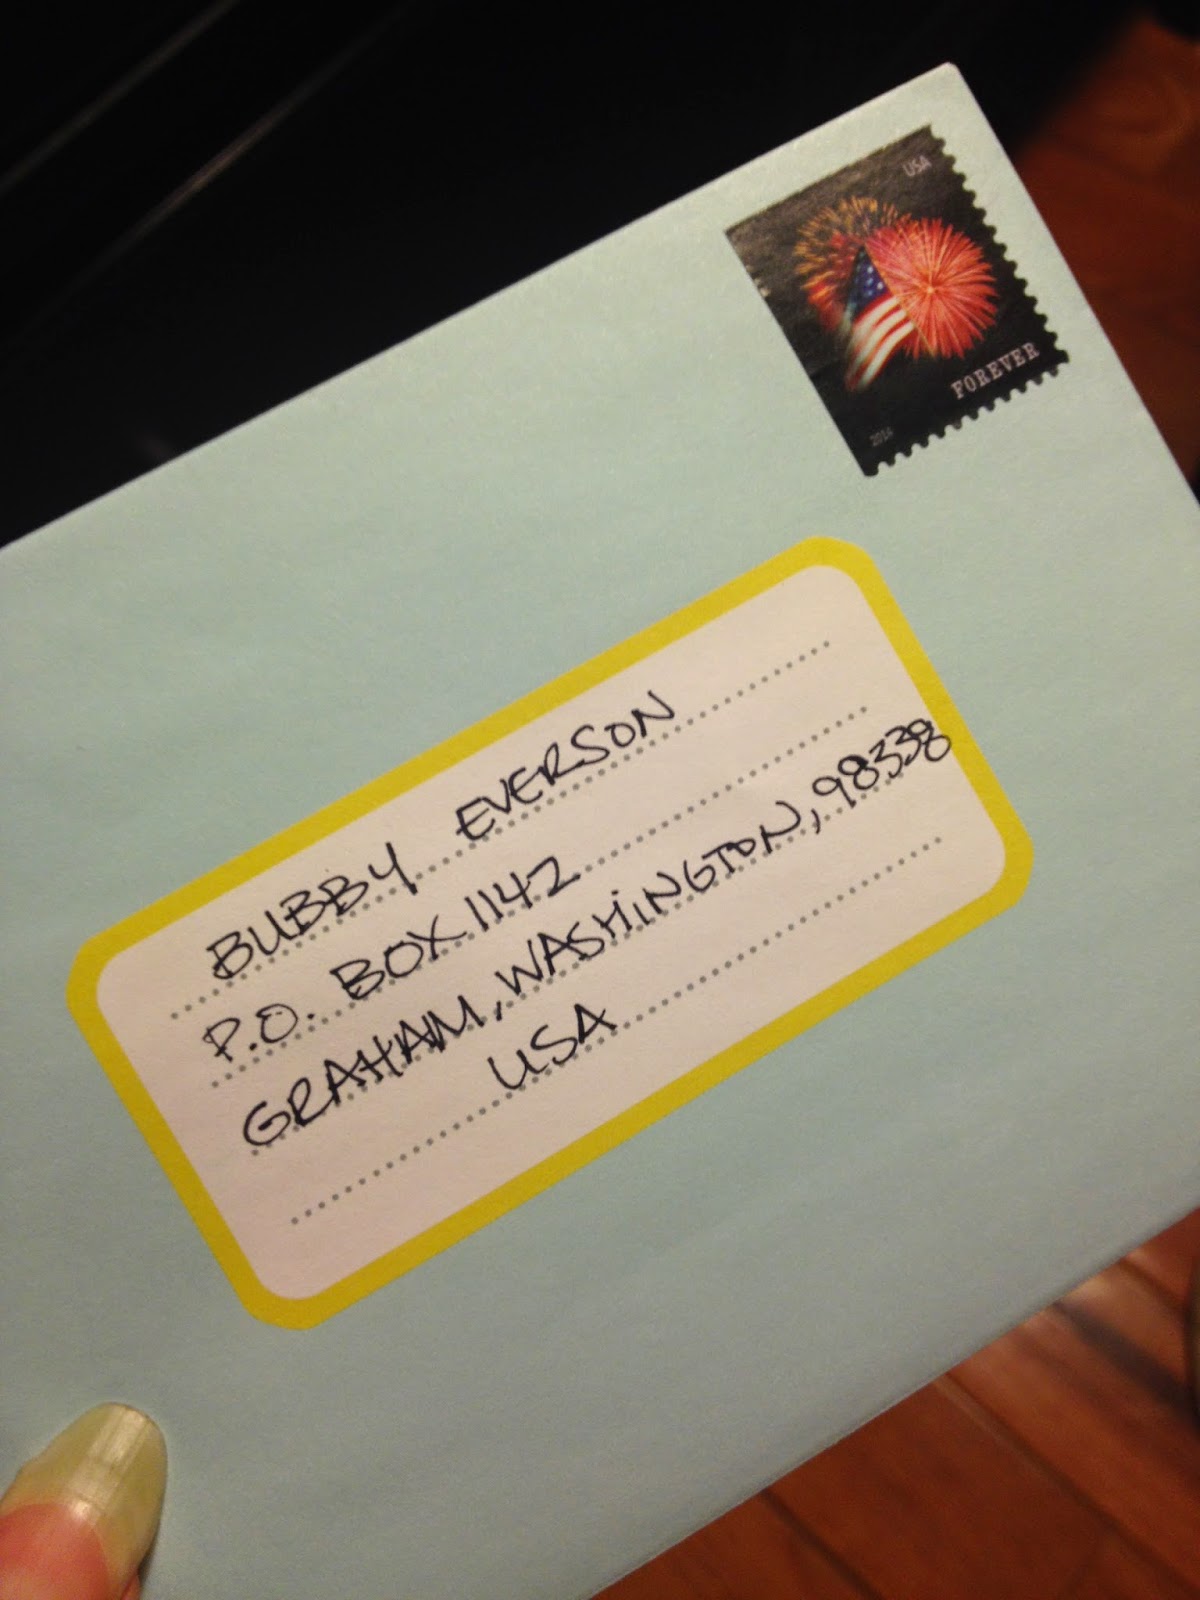 USA
FOREVER
2014
BUBBY EVERSON
P.O. BOX 1142
GRAHAM, WASHINGTON, 98338
USA